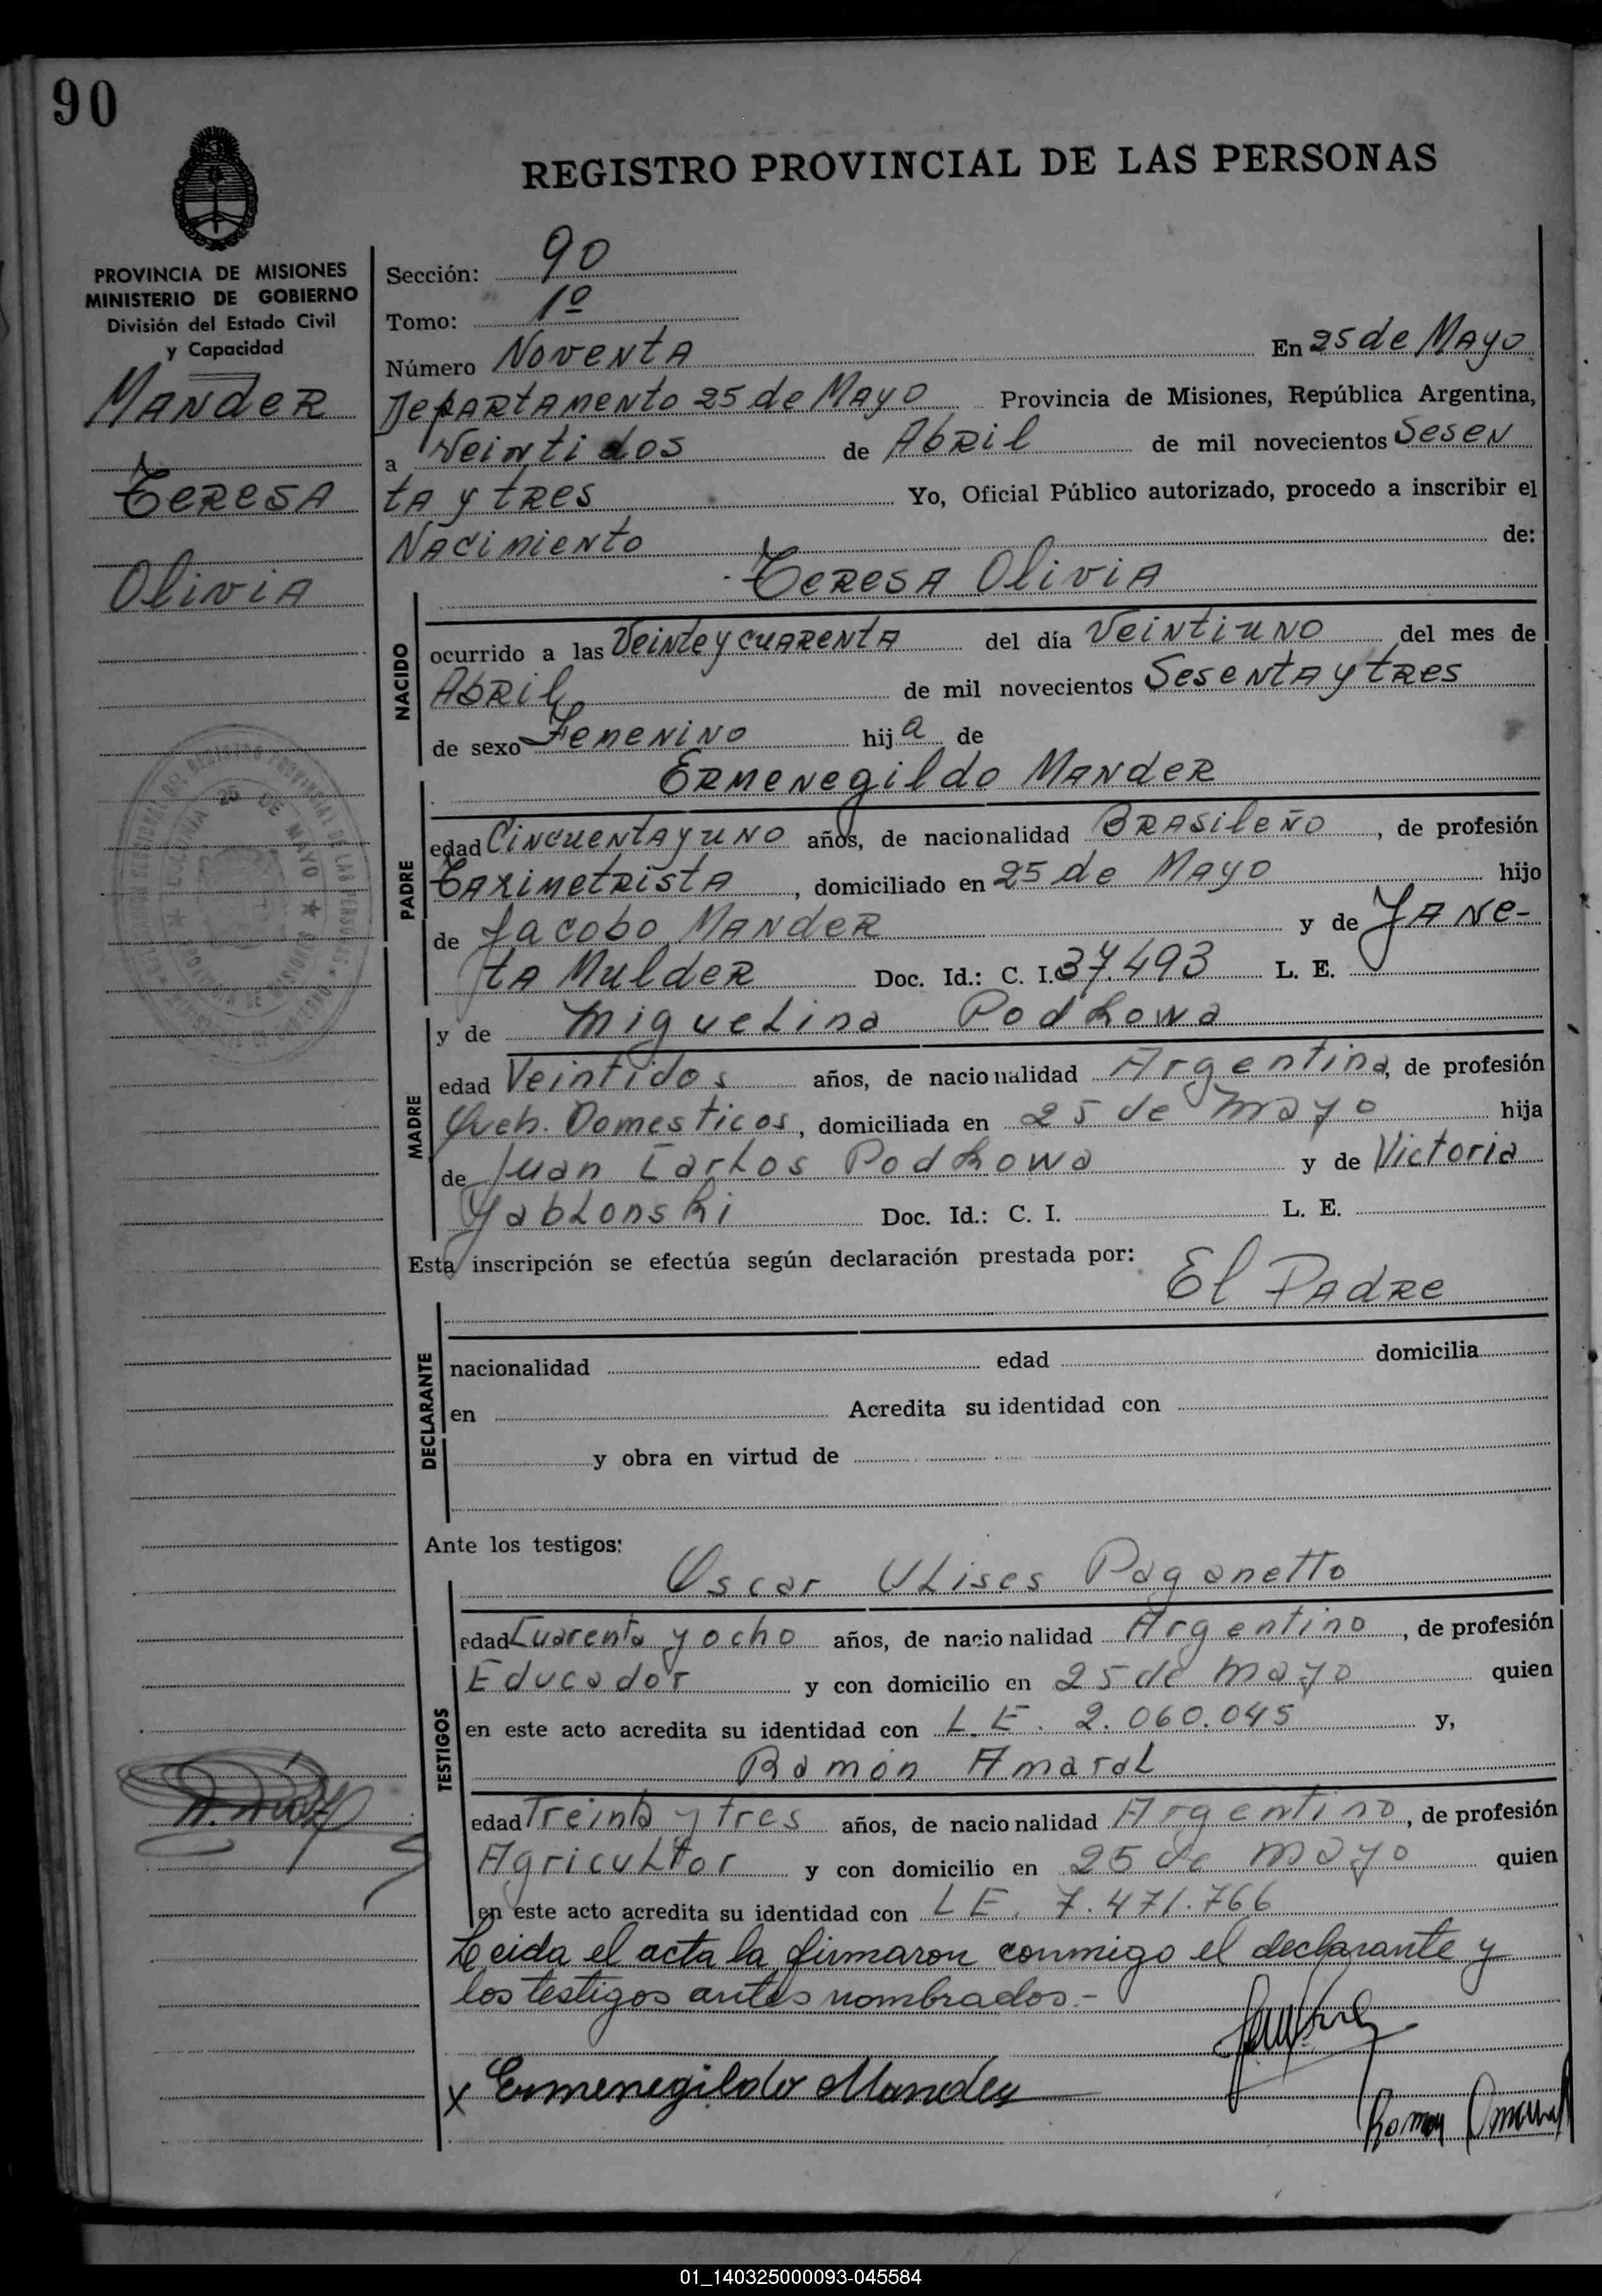 90
REGISTRO PROVINCIAL DE LAS PERSONAS
PROVINCIA DE MISIONES
MINISTERIO DE GOBIERNO
División del Estado Civil
y Capacidad
Mander
Teresa
Olivia
Sección: 90
Tomo: 1º
Número Noventa En 25 de Mayo
Departamento 25 de Mayo Provincia de Misiones, República Argentina,
a Veinti dos de Abril de mil novecientos Sesen
ta y tres Yo, Oficial Público autorizado, procedo a inscribir el
Nacimiento de:
Teresa Olivia
NACIDO
ocurrido a las Veinte y cuarenta del día Veintiuno del mes de
Abril de mil novecientos Sesenta y tres
de sexo Femenino hija de
Ermenegildo Mander
PADRE
edad Cincuenta y uno años, de nacionalidad Brasileño, de profesión
Taximetrista, domiciliado en 25 de Mayo hijo
de Jacobo Mander y de Jane-
ta Mulder Doc. Id.: C. I. 37.493 L. E.
y de Miguelina Podkowa
MADRE
edad Veintidos años, de nacionalidad Argentina, de profesión
Queh. Domesticos, domiciliada en 25 de mayo hija
de Juan Carlos Podkowa y de Victoria
Yablonski Doc. Id.: C. I. L. E.
Esta inscripción se efectúa según declaración prestada por:
El Padre
DECLARANTE
nacionalidad edad domicilia
en Acredita su identidad con
y obra en virtud de
Ante los testigos:
Oscar Ulises Paganetto
TESTIGOS
edad Cuarenta y ocho años, de nacionalidad Argentino, de profesión
Educador y con domicilio en 25 de mayo quien
en este acto acredita su identidad con L. E. 2.060.045 y,
Ramón Amaral
edad Treinta y tres años, de nacionalidad Argentino, de profesión
Agricultor y con domicilio en 25 de mayo quien
en este acto acredita su identidad con L E. 7.471.766
Leida el acta la firmaron conmigo el declarante y
los testigos antes nombrados.-
x Ermenegildo Mander
Ramon Amaral
01_140325000093-045584